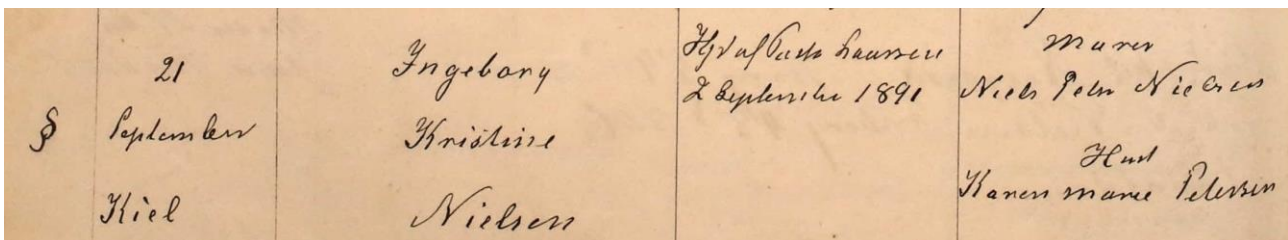 §
21
September
Kiel
Ingeborg
Kristine
Nielsen
Hjd af Pastor Laursen
2 September 1891
Murer
Niels Peter Nielsen
Hust
Karen Marie Petersen